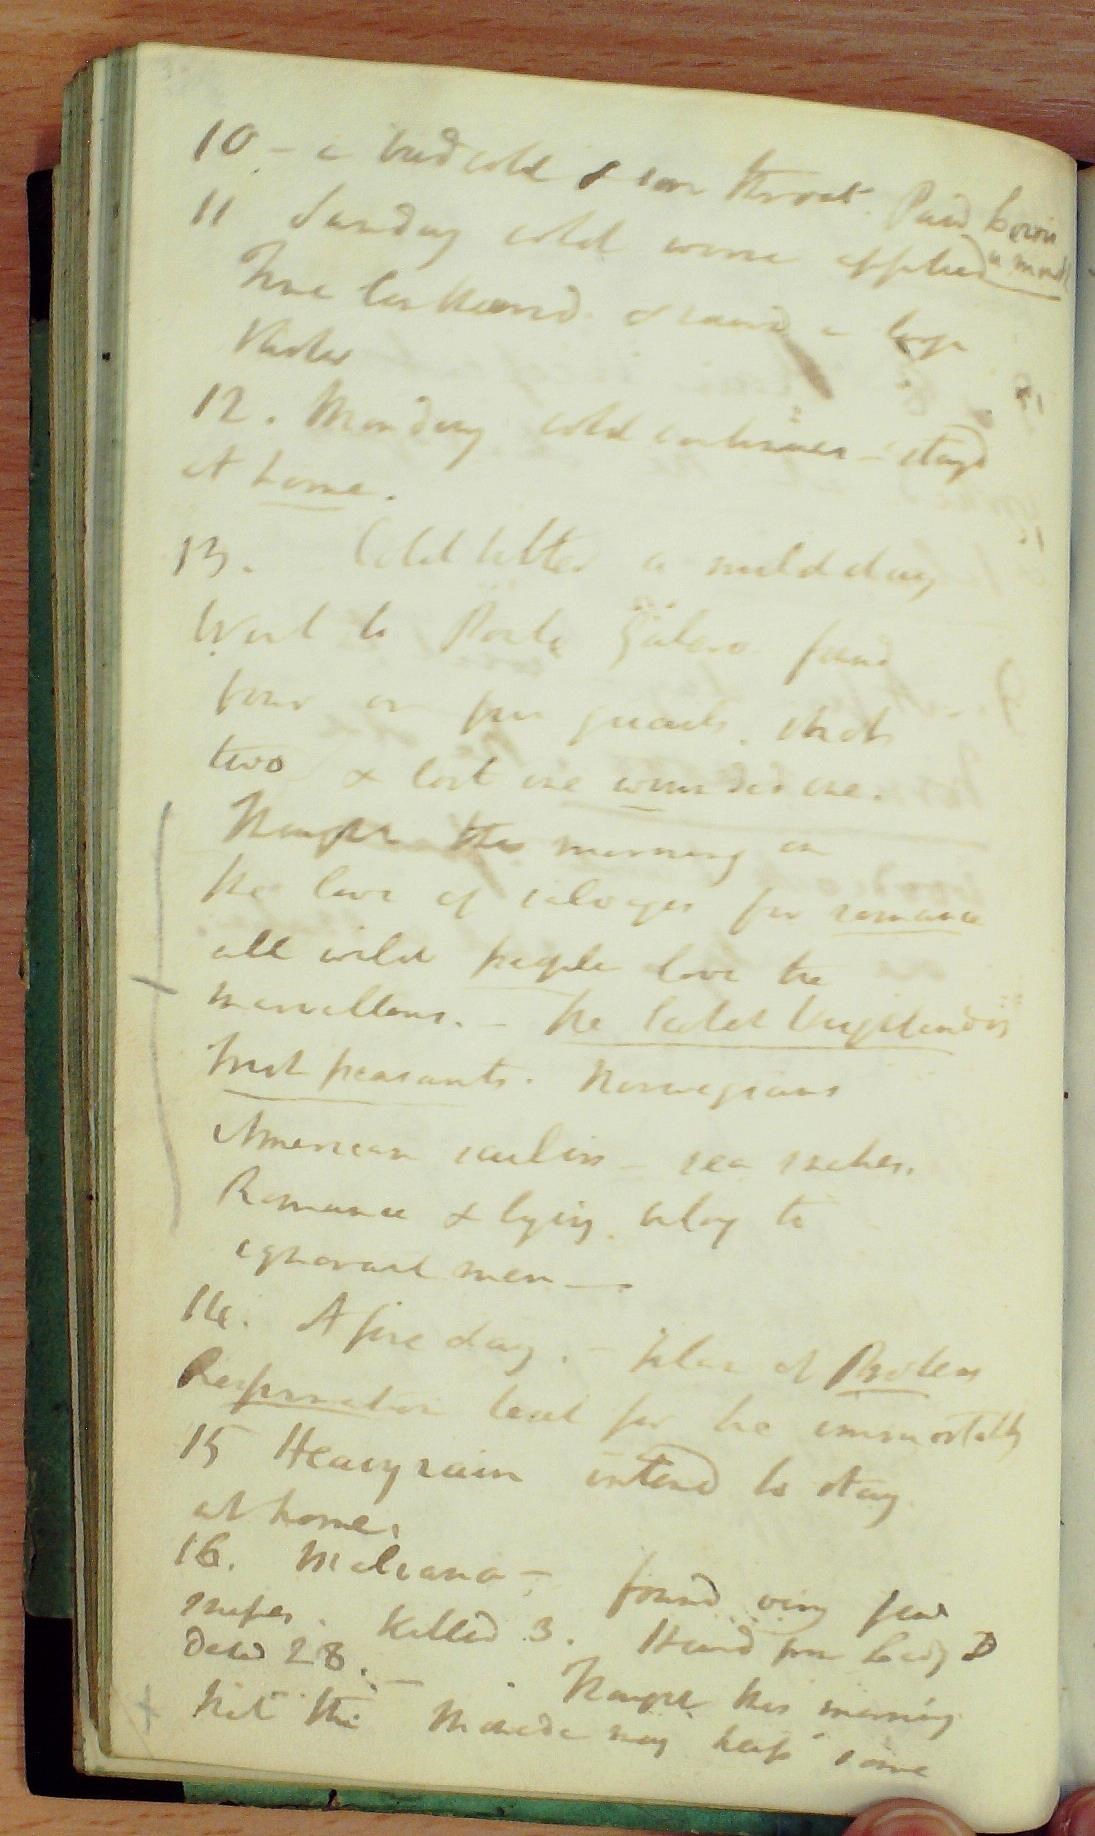 10 - a bad cold & sore throat. Paid
11 Sunday cold worse applied a month
& caused a large
12. Monday cold continues - stayd
At home.
13. Cold better a mild day
Went to Porta found
four or five quails. shot
two & lost one wounded one.
Thought this morning on
the love of savages for romance
all wild people love the
marvellous. - the Scotch Highlanders
Irish peasants. Norwegians
American sailors - sea snakes.
Romance & lying belong to
ignorant men -
14. A fine day. - plan of Proteus
Respiration for the immortality
15 Heavy rain intend to stay
at home.
16. Maliana - found very few
snipes. Killed 3. Heard from Lady D
Dated 28. - Thought this morning
that the may keep some